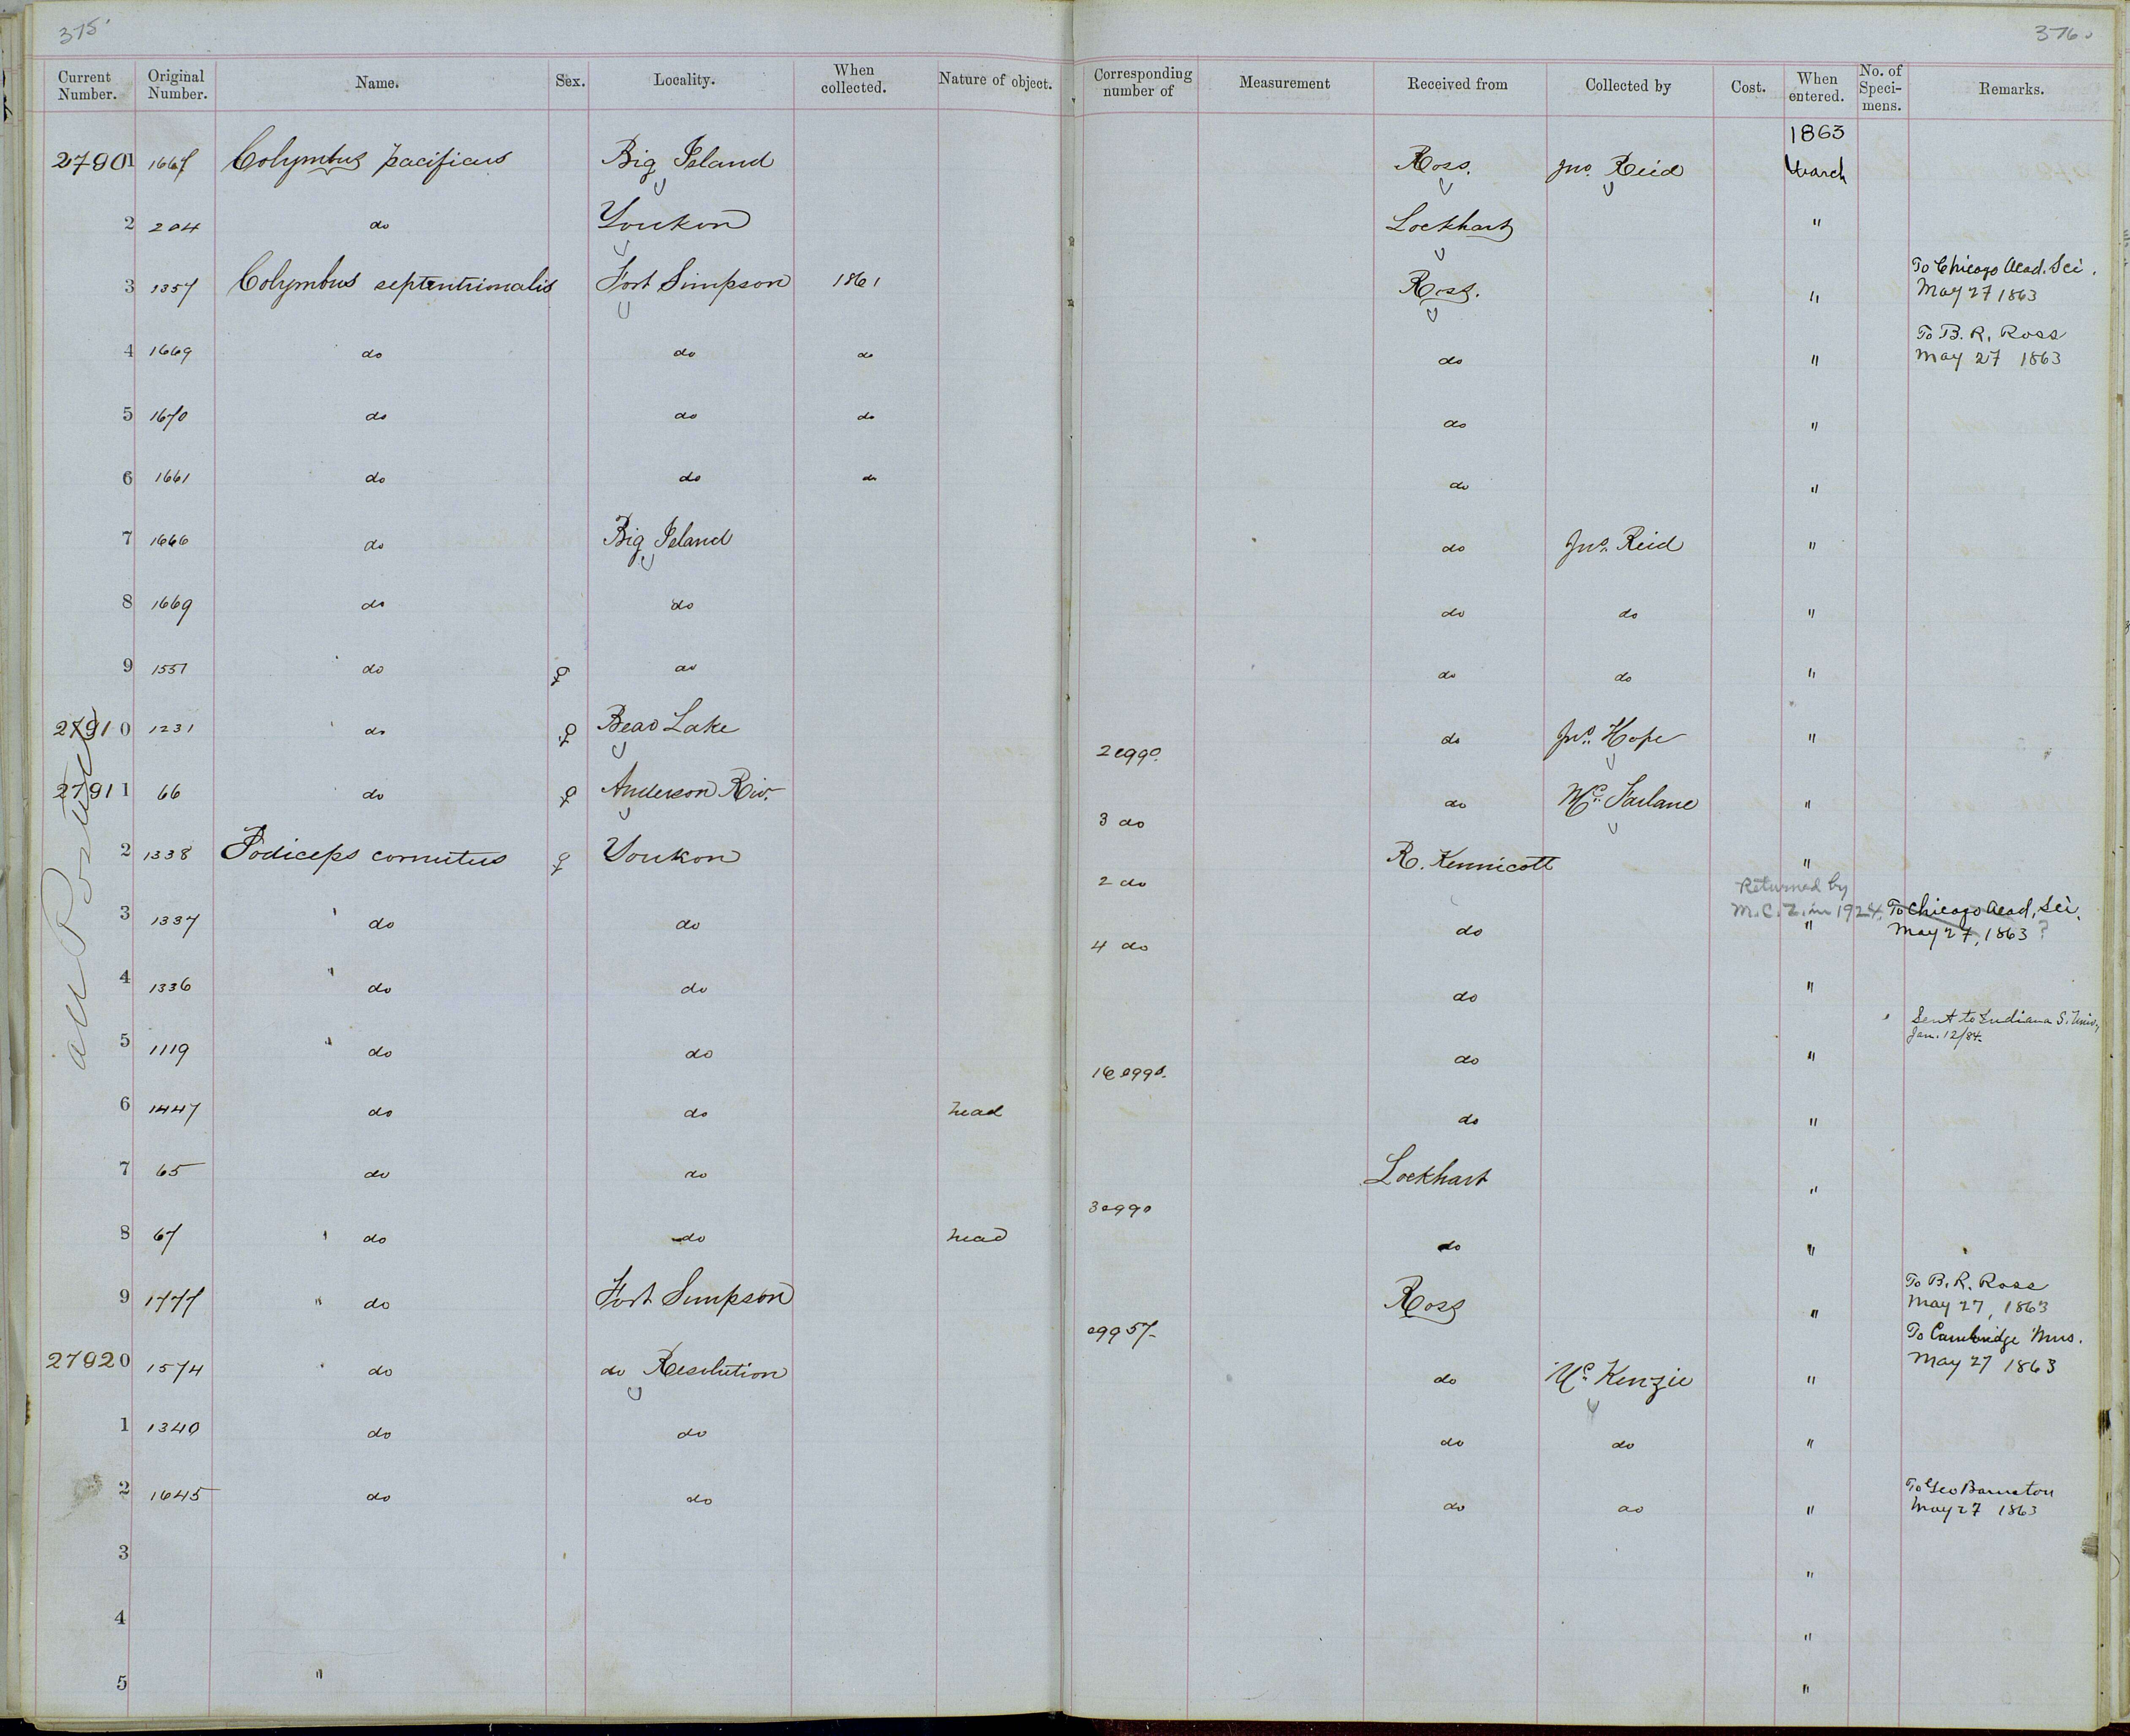 375
376
Current Number. Original Number. Name. Sex. Locality. When collected. Nature of object. Corresponding number of Measurement Received from Collected by Cost. When entered. No. of Speci- mens. Remarks.
1863
27901 1667 Colymbus pacificus Big Island Ross. Jno. Reid March
2 204 do Youkon Lockhart "
3 1357 Colymbus septentrionalis Fort Simpson 1861 Ross. " To Chicago Acad. Sci. May 27 1863
4 1669 do do do do " To B. R. Ross May 27 1863
5 1670 do do do do "
6 1661 do do do do "
7 1666 do Big Island do Jno. Reid "
8 1669 do do do do "
9 1557 do ♀ do do do "
27910 1231 do ♀ Bear Lake 2 eggs. do Jno. Hope "
27911 66 do ♀ Anderson Riv. 3 do do Mc. Farlane "
2 1338 Podiceps cornutus ♀ Youkon 2 do R. Kennicott "
Returned by M.C.Z. in 1924.
3 1337 do do 4 do do " To Chicago Acad. Sci. May 27, 1863 ?
4 1336 do do do "
5 1119 do do 16 eggs. do " Sent to Indiana S. Univ, Jan. 12/84.
6 1447 do do head do "
7 65 do do 3 eggs Lockhart "
8 67 do do head do "
9 1477 do Fort Simpson egg 57 Ross " To B. R. Ross May 27, 1863
27920 1574 do do Resolution do Mc. Kenzie " To Cambridge Mus. May 27 1863
1 1340 do do do do "
2 1645 do do do do " To Geo Barnston May 27 1863
3 "
4 "
5 " "